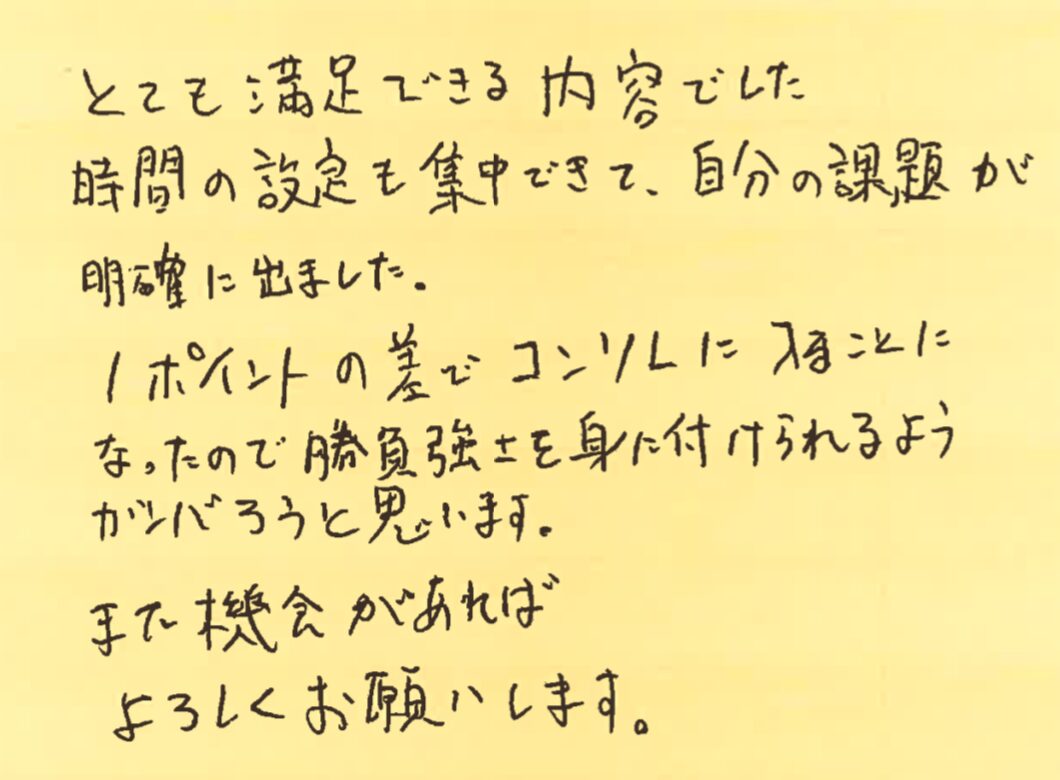 とても満足できる内容でした
時間の設定も集中できて、自分の課題が
明確に出ました。
1ポイントの差でコンソレに入ることに
なったので勝負強さを身に付けられるよう
ガンバろうと思います。
また機会があれば
よろしくお願いします。